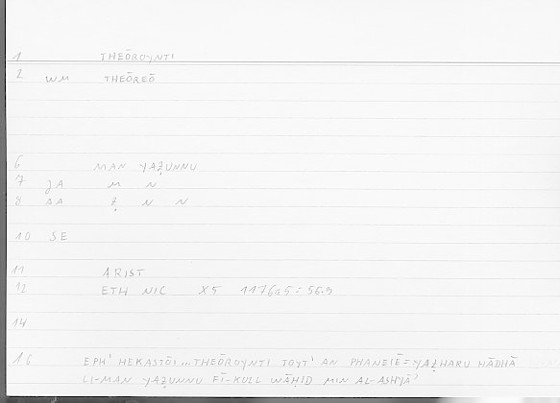 1 THEŌROYNTI
2 WM THEŌREŌ
6 MAN YAẒUNNU
7 JA M N
8 AA Ẓ N N
10 SE
11 ARIST
12 ETH NIC X5 1176b5 = 56.9
14
16 EPH' HEKASTŌI ... THEŌROYNTI TOYT' AN PHANEIĒ = YAẒHARU HĀDHĀ
LI-MAN YAẒUNNU FĪ-KULL WĀḤID MIN AL-ASHYĀ'